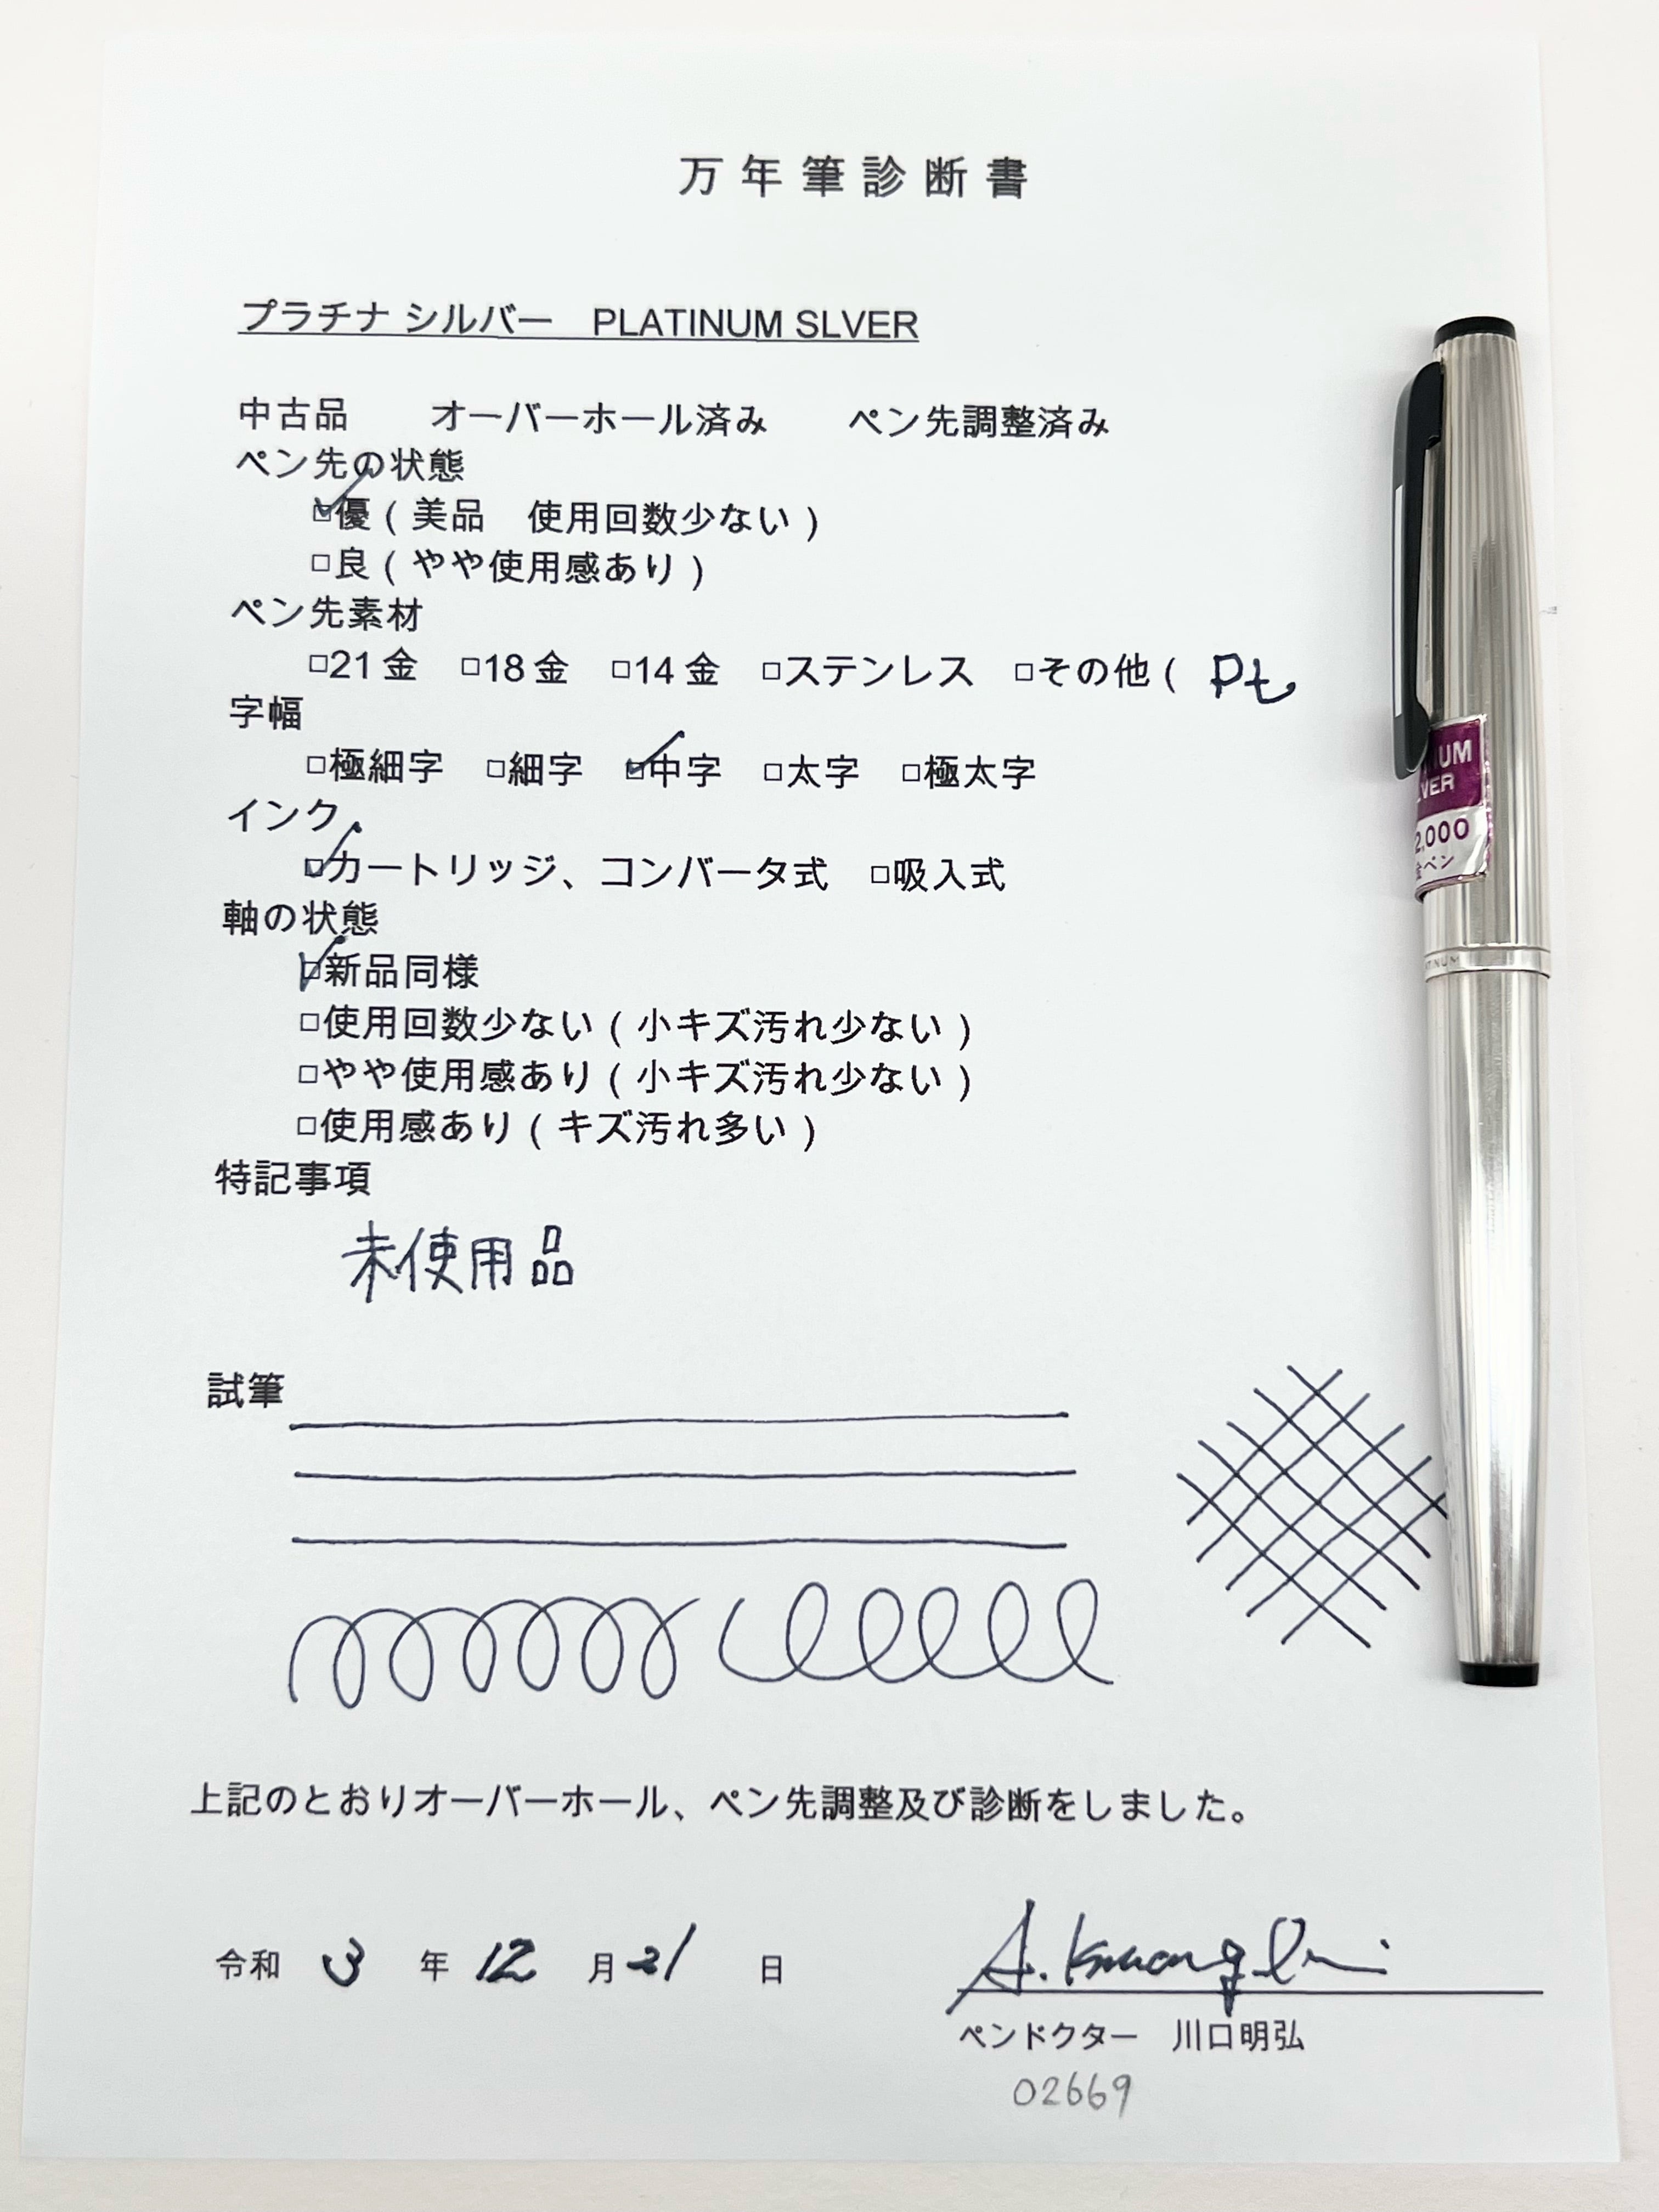 万年筆診断書
プラチナ シルバー　PLATINUM SLVER
中古品　オーバーホール済み　ペン先調整済み
ペン先の状態
☑優（美品　使用回数少ない）
□良（やや使用感あり）
ペン先素材
□21金　□18金　□14金　□ステンレス　□その他（ Pt
字幅
□極細字　□細字　☑中字　□太字　□極太字
インク
☑カートリッジ、コンバータ式　□吸入式
軸の状態
☑新品同様
□使用回数少ない（小キズ汚れ少ない）
□やや使用感あり（小キズ汚れ少ない）
□使用感あり（キズ汚れ多い）
特記事項
未使用品
試筆
上記のとおりオーバーホール、ペン先調整及び診断をしました。
令和 3 年 12 月 21 日
A. Kawaguchi
ペンドクター　川口明弘
02669
UM
VER
2,000
金ペン
TINUM